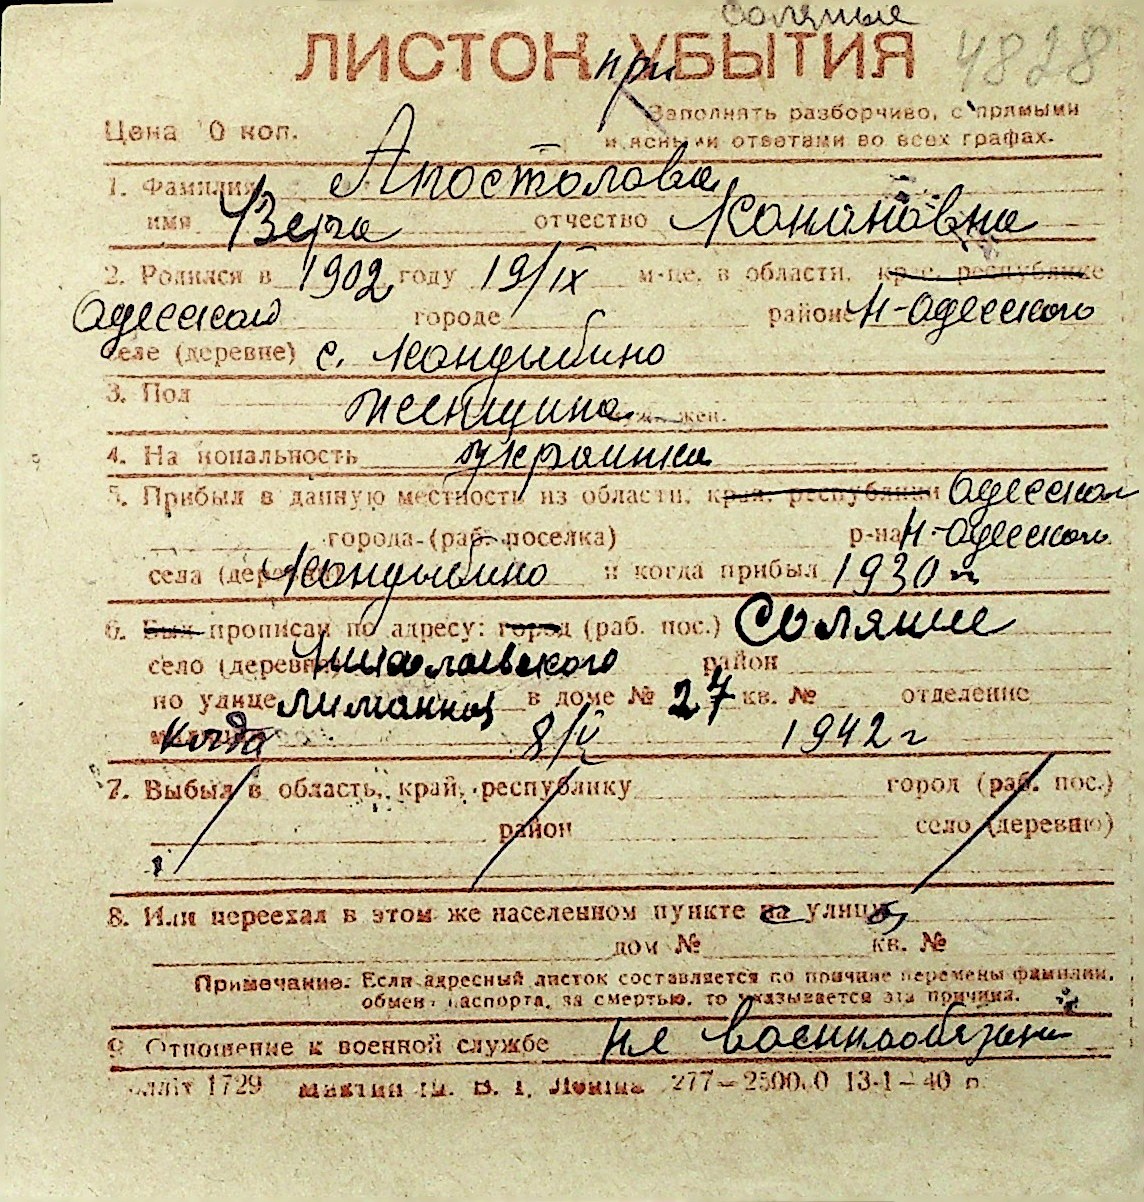 Соляные
ЛИСТОК при УБЫТИЯ 4828
Заполнять разборчиво, с прямыми
Цена 10 коп. и ясными ответами во всех графах.
1. Фамилия Апостолова
имя Вера отчество Конановна
2. Родился в 1902 году 19/IX м-це, в области, крае, республике
Одесской городе районе Н-Одесского
селе (деревне) с. Кандыбино
3. Пол женщина муж. жен.
4. Национальность украинка
5. Прибыл в данную местность из области, края, республики Одесской
города (раб. поселка) р-на Н-Одесского
села (деревни) Кандыбино и когда прибыл 1930 г
6. Был прописан по адресу: город (раб. пос.) Соляные
село (деревня) Николаевского район
по улице Лиманной в доме № 27 кв. № отделение
когда 8/V 1942 г
7. Выбыл в область, край, республику город (раб. пос.)
район село (деревню)
8. Или переехал в этом же населенном пункте на улицу
дом № кв. №
Примечание. Если адресный листок составляется по причине перемены фамилии,
обмена паспорта, за смертью, то указывается эта причина.
9. Отношение к военной службе не военнообязан
1729 ім. В. І. Леніна 277—25000 13-1—40 р.